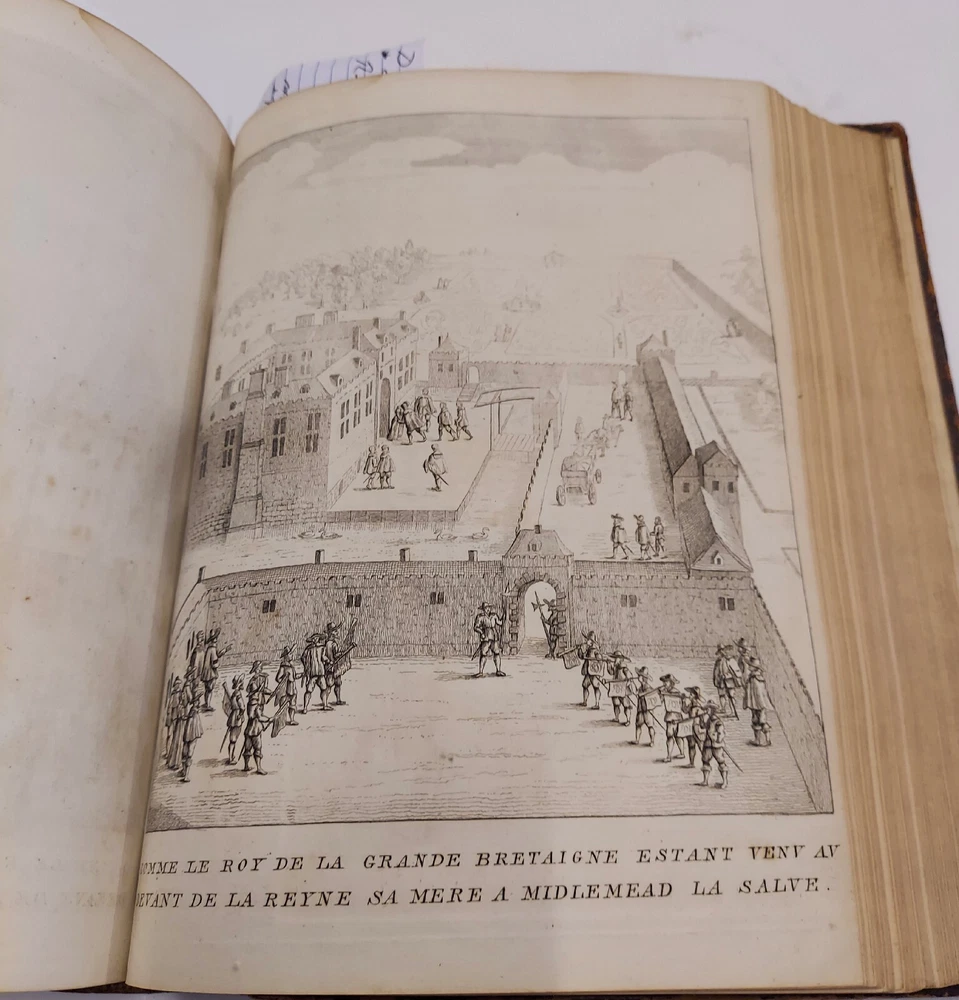 COMME LE ROY DE LA GRANDE BRETAIGNE ESTANT VENV AV
DEVANT DE LA REYNE SA MERE A MIDLEMEAD LA SALVE.